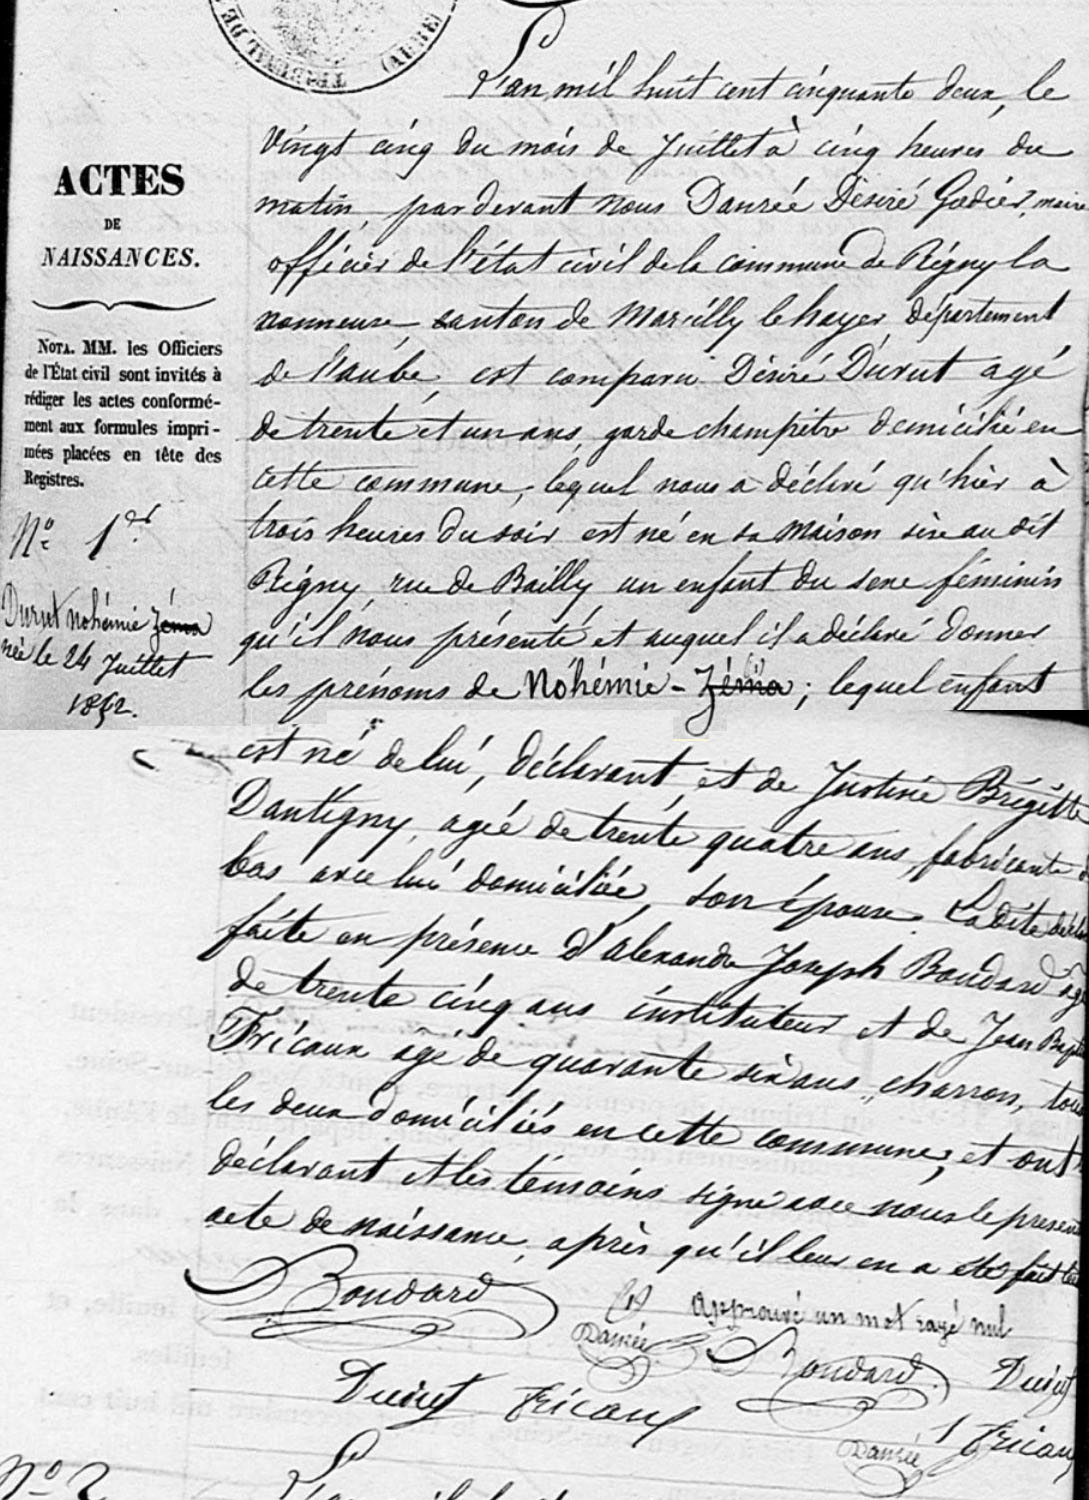 TRIBUNAL DE (AUBE)
ACTES
DE
NAISSANCES.
NOTA. MM. les Officiers
de l'État civil sont invités à
rédiger les actes conformé-
ment aux formules impri-
mées placées en tête des
Registres.
No. 1er
Durut Nohémie Zéma
née le 24 Juillet
1852.
L'an mil huit cent cinquante deux, le
vingt cinq du mois de Juillet à cinq heures du
matin, par devant nous Danrée Désiré Godier, maire
officier de l'état civil de la commune de Rigny la
nonneuse canton de Marcilly le hayer, département
de l'aube, est comparu Désiré Durut agé
de trente et un ans, garde champêtre domicilié en
cette commune, lequel nous a déclaré qu'hier à
trois heures du soir est né en sa maison sise au dit
Rigny rue de Bailly un enfant du sexe féminin
qu'il nous présenté et auquel il a déclaré donner
les prénoms de Nohémie - Zéma ; lequel enfant
est né de lui, déclarant, et de Justine Brigitte
Dantigny, agée de trente quatre ans, fabricante d
bas avec lui domiciliée, son épouse. La dite décla
faite en présence d'alexandre Joseph Boudard âg
de trente cinq ans instituteur et de Jean Bapti
Fricaux agé de quarante six ans, charron, tous
les deux domiciliés en cette commune, et ont
déclarant et les témoins signé avec nous le présent
acte de naissance, après qu'il leur en a été fait lec
Boudard
Approuvé un mot rayé nul
Danrée Boudard Durut
Durut Fricaux
Danrée Fricaux
No 2